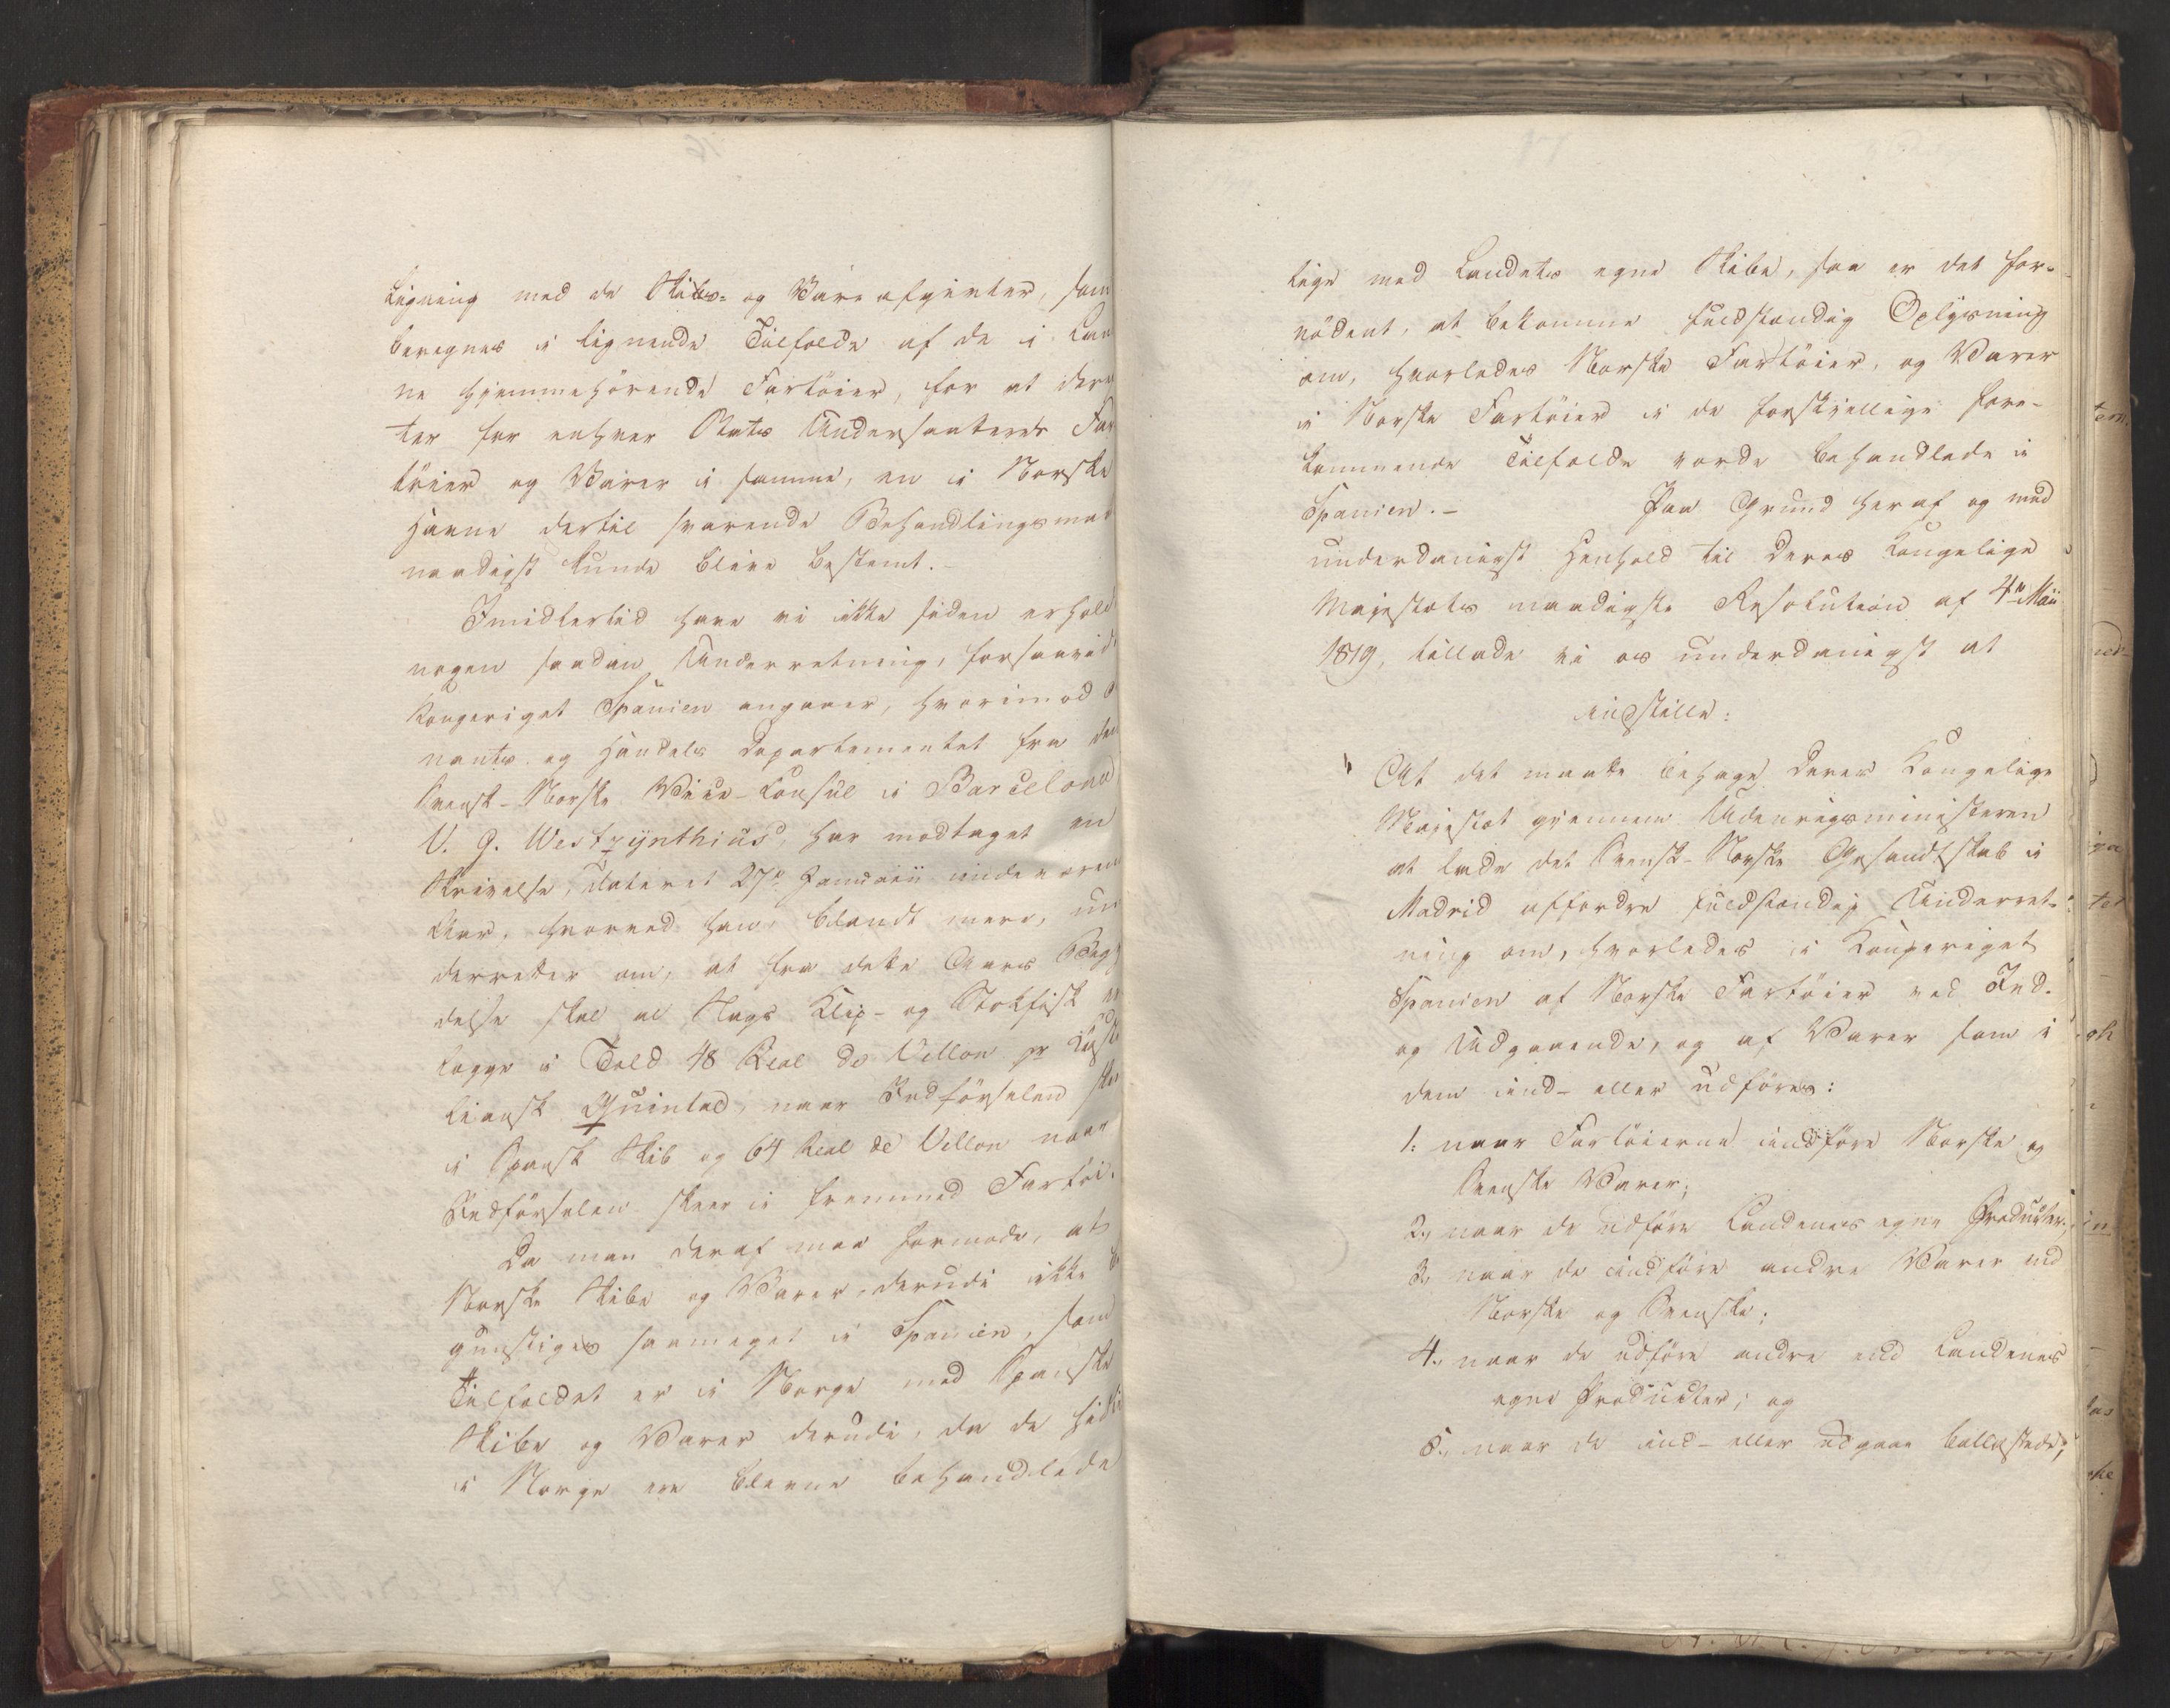 ligning med de Skibs- og Vareafgivter, som
beregnes i lignende Tilfælde af de i Lan
ne hjemmehörende Fartöier, for at deref
ter for enhver Stats Undersaatters Far
töier og Varer i samme, en i Norske
Havne dertil svarende Behandlingsmaa
naadigst kunde blive bestemt.-
Imidlertid have vi ikke siden erholdt
nogen saadan Underretning, forsaavidt
Kongeriget Spanien angaaer, hvorimod
nants- og Handels Departementet fra den
Svensk-Norske Vice-Consul i Barcelona
V. G. Westzÿnthius, har modtaget en
Skrivelse, dateret 27de Januarii indeværende
Aar, hvorved han, blandt mere, un
derretter om, at fra dette Aars Begÿ
delse skal al Slags Klip- og Stokfisk er
lægge i Told 48 Real de Vellon pr Casti
liansk Quintal, naar Indförselen skeer
i Spansk Skib og 64 Real de Vellon naar
Indförselen skeer i fremmed Fartöi.
Da man deraf maa formode, at
Norske Skibe og Varer derudi ikke be
gunstiges saameget i Spanien, som
Tilfældet er i Norge med Spanske
Skibe og Varer derudi, da de hidtil
i Norge ere blevne behandlede
lige med Landets egne Skibe, saa er det for-
nödent, at bekomme fuldstændig Oplysning
om, hvorledes Norske Fartöier, og Varer
i Norske Fartöier i de forskjellige fore-
kommende Tilfælde vorde behandlede i
Spanien.- Paa Grund heraf og med
underdanigst Henhold til Deres Kongelige
Majestæts naadigste Resolution af 4de Maii
1819, tillade vi os underdanigst at
indstille:
At det maatte behage Deres Kongelige
Majestæt gjennem Udenrigsministeren
at lade det Svensk-Norske Gesandtskab i
Madrid affordre fuldstændig Underret-
ning om, hvorledes i Kongeriget
Spanien af Norske Fartöier ved Ind-
og Udgaaende, og af Varer som i
dem ind- eller udföres:
1. naar Fartöierne indföre Norske og
Svenske Varer;
2., naar de udföre Landenes egne Producter;
3., naar de indföre andre Varer end
Norske og Svenske;
4., naar de udföre andre end Landenes
egne Producter; og
5., naar de ind- eller udgaae ballastede;